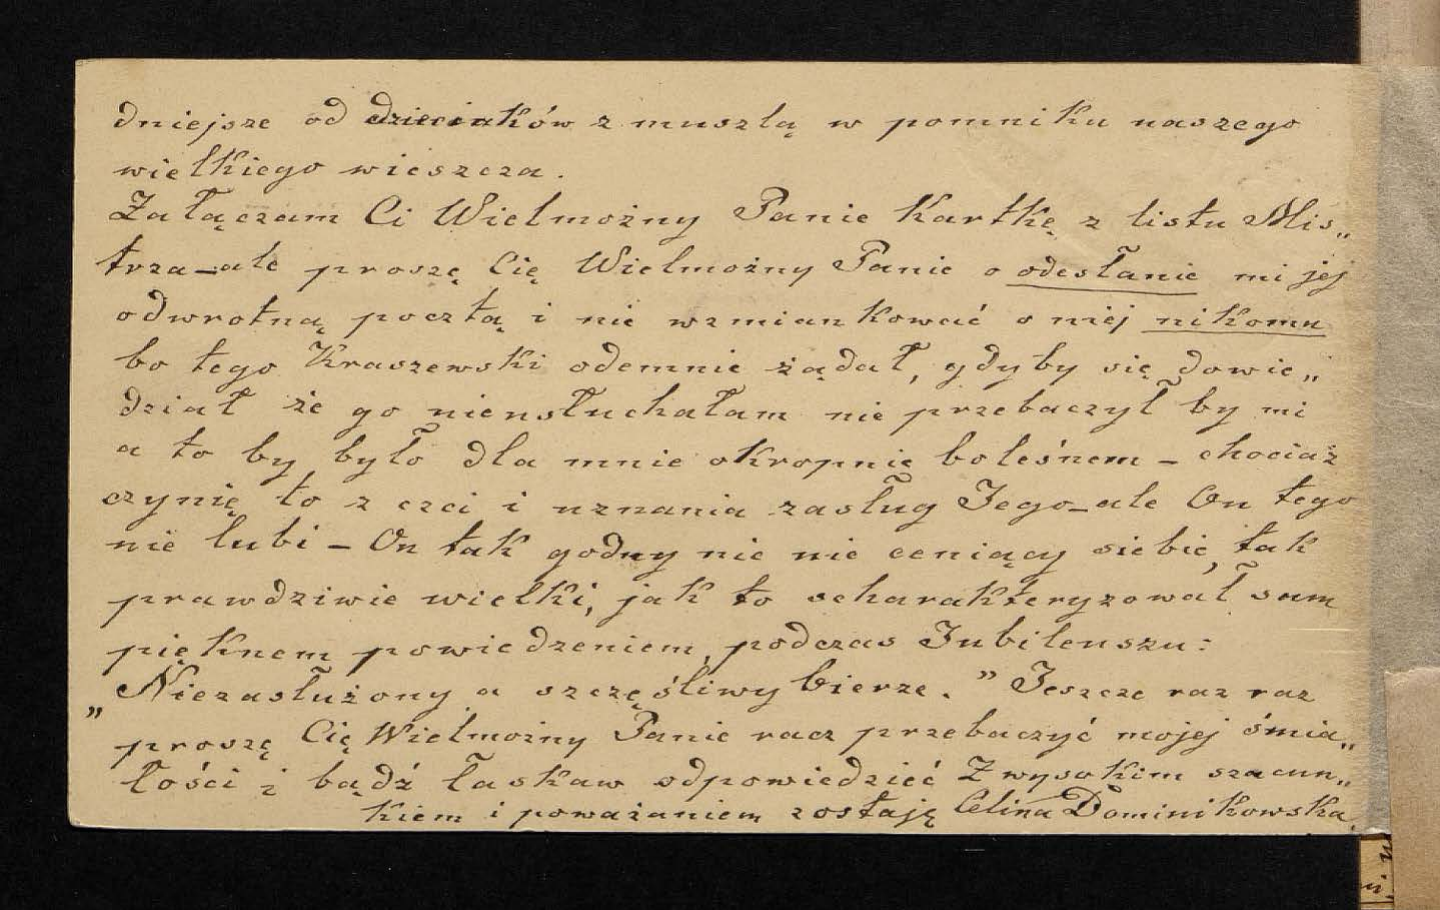 dniejsze od dzieciaków z muszlą w pomniku naszego
wielkiego wieszcza.
Załączam Ci Wielmożny Panie Kartkę z listu Mis„
trza_ale proszę Cię Wielmożny Panie o odesłanie mi jej
odwrotną pocztą i nie wzmiankować o niej nikomu
bo tego Kraszewski odemnie żądał, gdyby się dowie„
dział że go nieusłuchałam nie przebaczył by mi
a to by było dla mnie okropnie boleśnem – chociaż
czynię to z czci i uznania zasług Jego_ale On tego
nie lubi – On tak godny nie nie ceniący siebie, tak
prawdziwie wielki, jak to scharakteryzował sam
pięknem powiedzeniem, podczas Jubileuszu:
„Niezasłużony a szczęśliwy bierze." Jeszcze raz raz
proszę Cię Wielmożny Panie racz przebaczyć mojej śmia„
łości i bądź łaskaw odpowiedzieć Z wysokim szacun„
kiem i poważaniem zostaję Celina Dominikowska